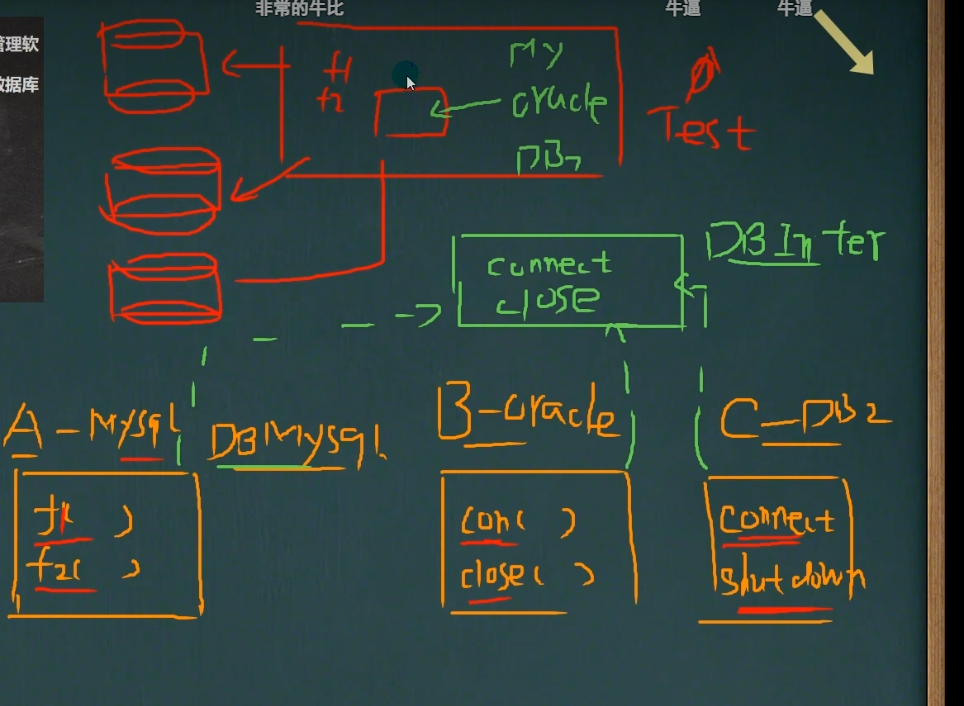 非常的牛比
牛逼
牛逼
管理软
数据库
f1
f2
My
oracle
DB2
Test
DBInter
connect
close
A-Mysql
DBMysql
B-oracle
C-DB2
f1( )
f2( )
con( )
close( )
connect
shutdown